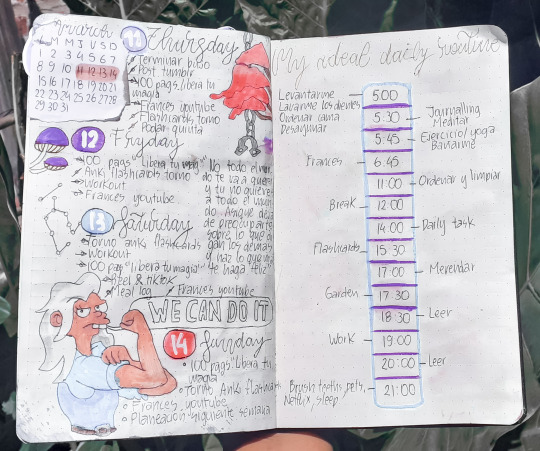 March
L M M J V S D
1 2 3 4 5 6 7
8 9 10 11 12 13 14
15 16 17 18 19 20 21
22 23 24 25 26 27 28
29 30 31
11 Thursday
Post tumblr
100 pags libera tu
magia
Frances youtube
Flashcards torno
12 Fryday
100 pags "libera tu magia"
Anki flashcards torno
Workout
Frances youtube
No todo el mun
do te va a querer
y tu no quieres
a todo el mun
do. Asique deja
de preocuparte
sobre lo que di
gan los demas
y haz lo que
te haga feliz
13 Saturday
Torno anki flashcards
Workout
100 pag "libera tu magia"
Reel & tiktok
Meal log
Frances youtube
WE CAN DO IT
14 Sunday
100 pags "Libera tu
magia
Torno Anki flashcards
Frances youtube
Planeación siguiente semana
My ideal daily routine
Levantarme
Lavarme los dientes
Ordenar cama
Desayunar
5:00
5:30
Journalling
Meditar
5:45
Ejercicio/yoga
Bañarme
Frances
6:45
11:00
Ordenar y limpiar
Break
12:00
14:00
Daily task
Flashcards
15:30
17:00
Merendar
Garden
17:30
18:30
Leer
Work
19:00
20:00
Leer
Brush teeth, pets,
Netflix, sleep
21:00